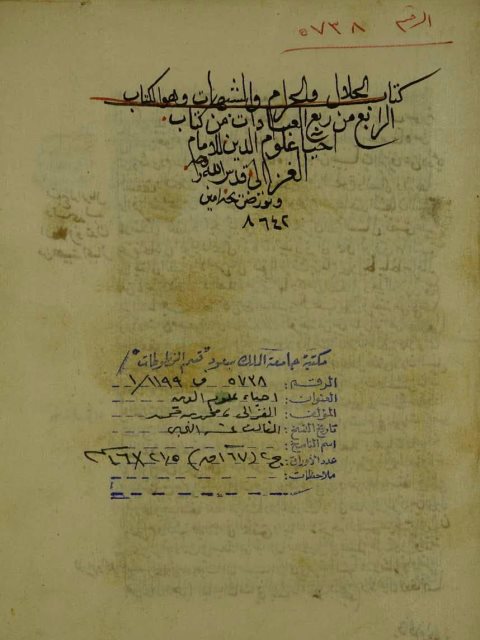 الرقم ٥٧٣٨
كتاب الحلال والحرام والشبهات وهو الكتاب
الرابع من ربع العبادات من كتاب
احياء علوم الدين للامام
الغزالي قدس الله روحه
ونور ضريحه امين
٨٦٤٢
مكتبة جامعة الملك سعود "قسم المخطوطات"
الرقم: ٥٧٣٨ ف ١/١١٩٩
العنوان: احياء علوم الدين
المؤلف: الغزالي، محمد بن محمد
تاريخ النسخ: الثالث عشر الهجري
اسم الناسخ:
عدد الأوراق: ج٢ (١٦٧ق)
ملاحظات: